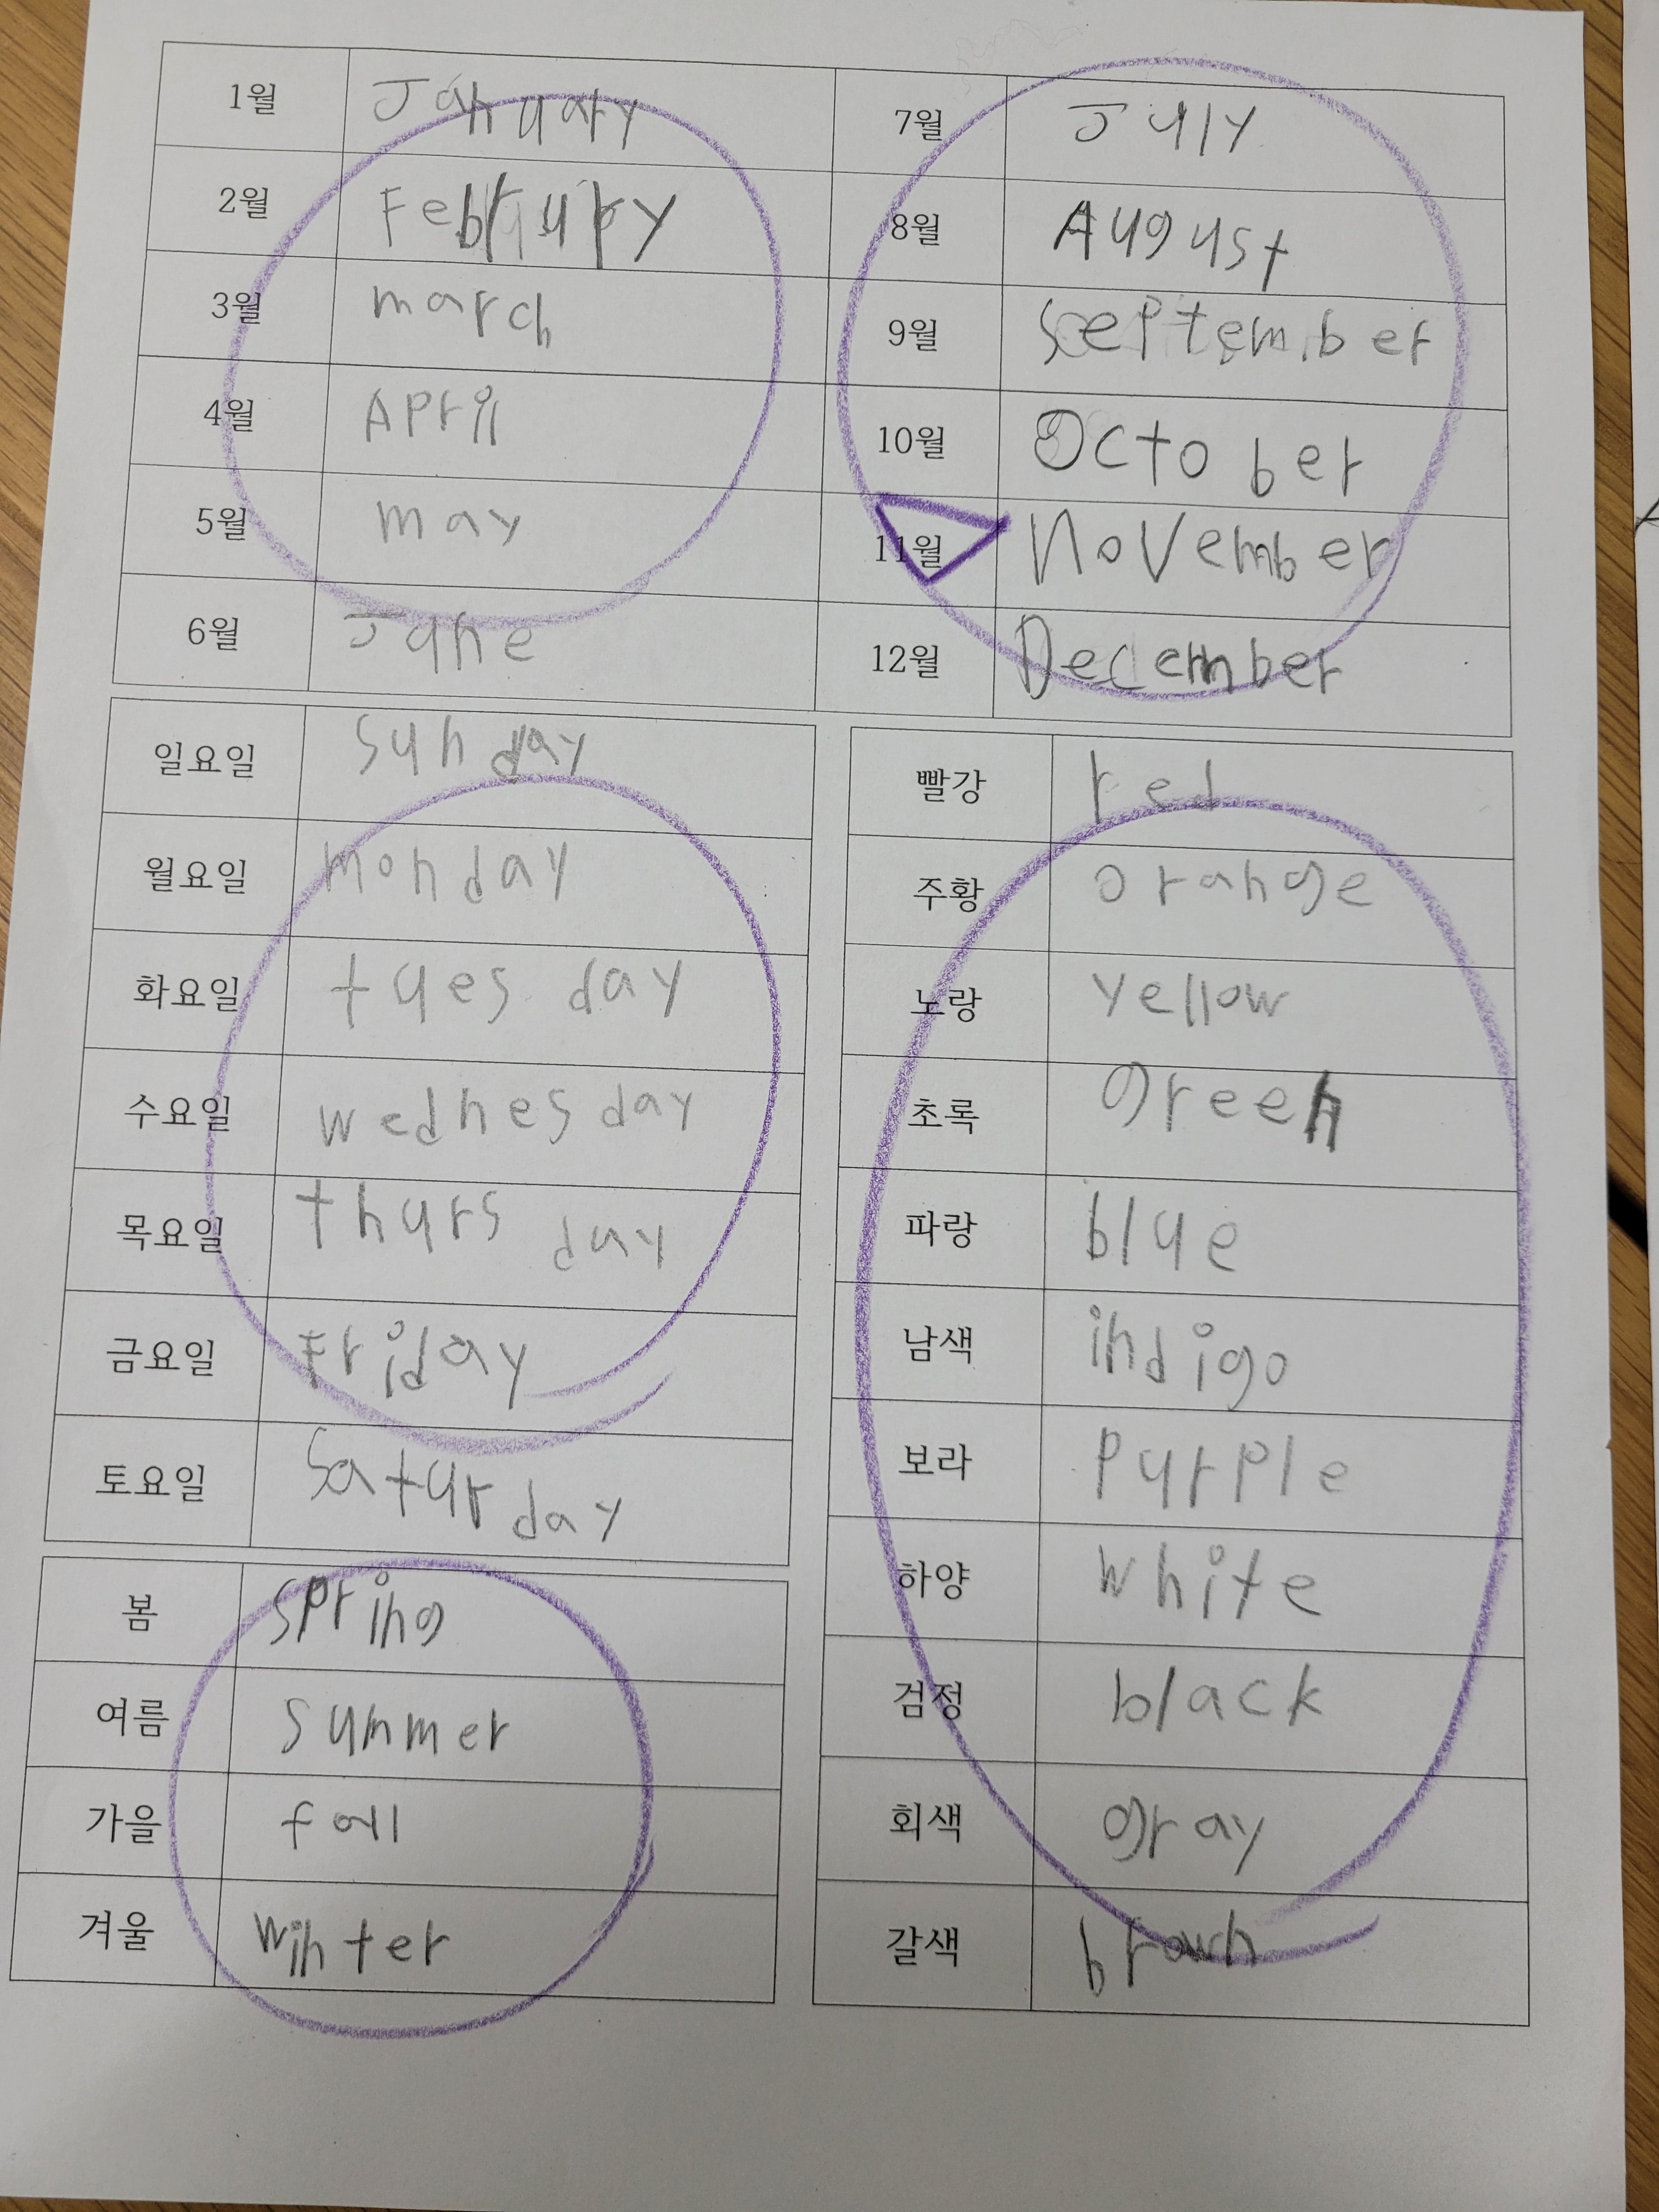 1월 January 7월 July
2월 February 8월 August
3월 march 9월 September
4월 April 10월 October
5월 may 11월 November
6월 June 12월 December
일요일 sunday
월요일 monday
화요일 tues day
수요일 wednes day
목요일 thurs day
금요일 Friday
토요일 Satur day
봄 spring
여름 summer
가을 fall
겨울 winter
빨강 red
주황 orange
노랑 yellow
초록 green
파랑 blue
남색 indigo
보라 purple
하양 white
검정 black
회색 gray
갈색 brown